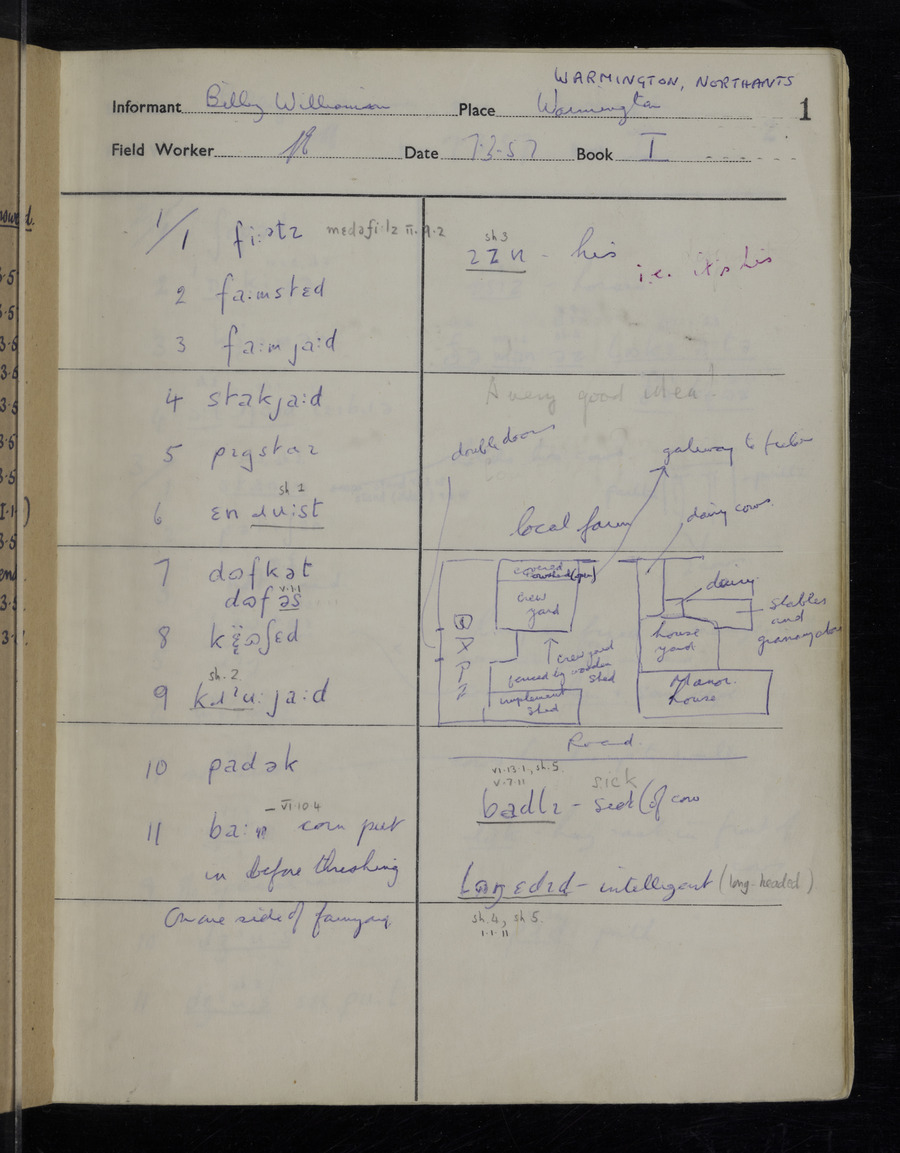 WARMINGTON, NORTHANTS
Informant Billy Williamson Place Warmington 1
Field Worker Date 7·3·57 Book I
1/1 fi:ətz medəfi·lz II.9.2
2 fa:mstɛd
3 fa:mja:d
4 stakja:d
5 pɪgstaɪ
sh 1
6 ɛn
7 dɒfkət
v·1·1
dɒfəs
8
sh. 2
9 ja:d
10 padək
– VI·10·4
11 ba:n corn put
in before threshing
On one side of farmyard
sh 3
ɪzn - his
i.e. it's his
A very good idea!
double doors
gateway to
local farm
dairy cows
covered
crew
yard
crew yard
fenced by wooden
shed
implement
shed
dairy
stables
and
house
yard
Manor
house
Road
VI·13·1, sh. 5
V·7·11
sick
badlɪ - sick (of cow
- intelligent (long-headed)
sh. 4, sh 5.
1·1·11